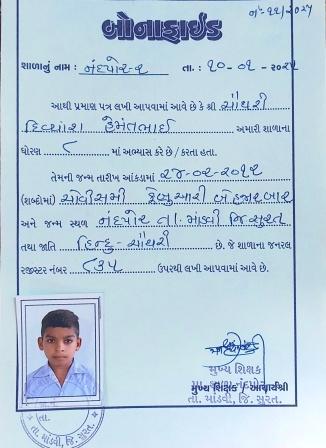 નં-૧૧/૨૦૨૫
બોનાફાઈડ
શાળાનું નામ : નંદપોર-૨ તા. : ૧૦-૦૧-૨૦૨૫
આથી પ્રમાણ પત્ર લખી આપવામાં આવે છે કે શ્રી ચૌધરી
દિવ્યાંશ હેમંતભાઈ અમારી શાળાના
ધોરણ ૮ માં અભ્યાસ કરે છે / કરતા હતા.
તેમની જન્મ તારીખ આંકડામાં ૨૪-૦૨-૨૦૧૨
(શબ્દોમાં) ચોવીસમી ફેબ્રુઆરી બે હજાર બાર
અને જન્મ સ્થળ નંદપોર તા. માંડવી જિ સુરત
તથા જાતિ હિન્દુ-ચૌધરી છે. જે શાળાના જનરલ
રજીસ્ટર નંબર ૮૩૫ ઉપરથી લખી આપવામાં આવે છે.
મુખ્ય શિક્ષક
મુખ્ય શિક્ષક / આચાર્યશ્રી
તા. માંડવી, જિ. સુરત.
તા. માંડવી, જિ. સુરત.